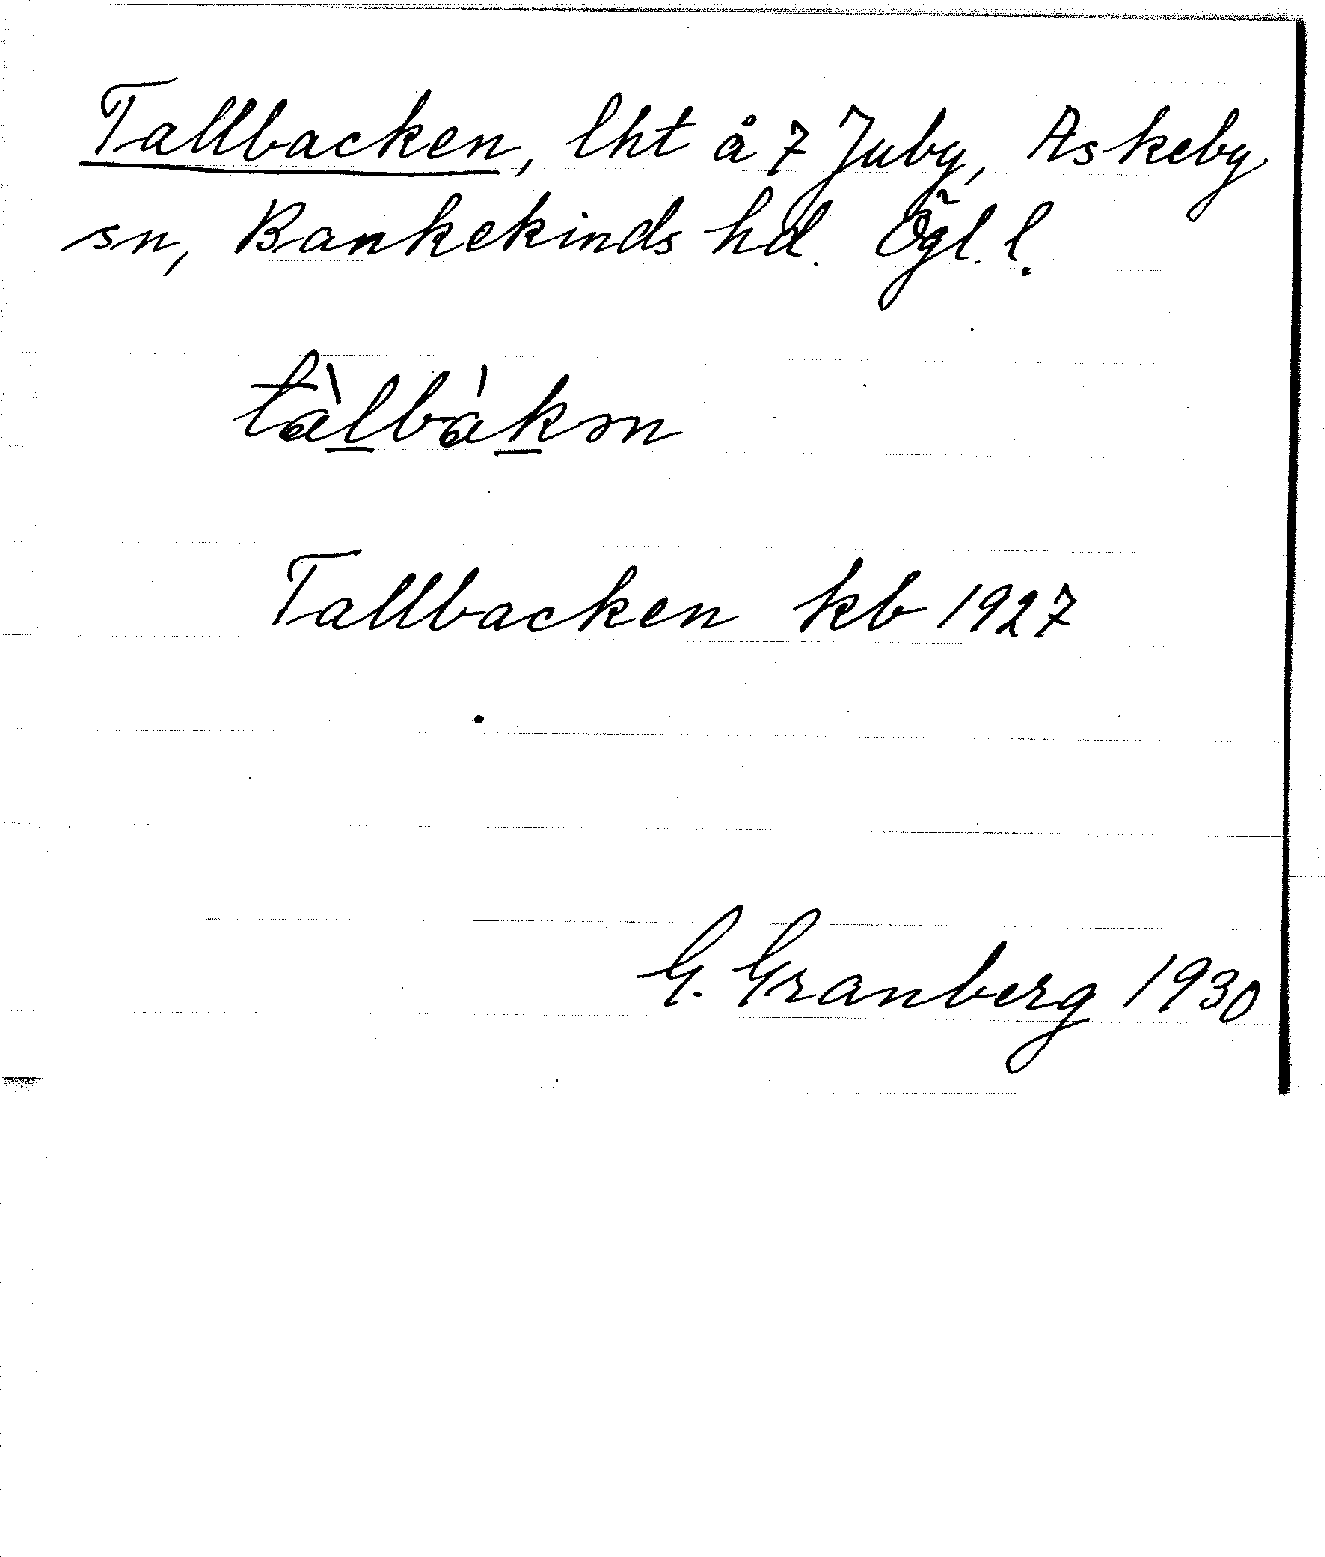 Tallbacken, lht å 7 Juby, Askeby
sn, Bankekinds hd. Ögl. l.
tàlbákən
Tallbacken kb 1927
G. Granberg 1930